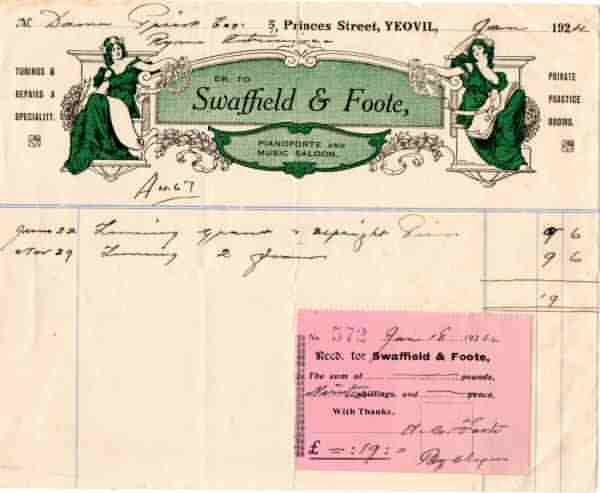 M. Dawn Esq. 5, Princes Street, YEOVIL, Jan 1924
TUNINGS &
REPAIRS A
SPECIALITY.
DR. TO
Swaffield & Foote,
PIANOFORTE AND
MUSIC SALOON.
PRIVATE
PRACTICE
ROOMS.
June 22 Tuning Grand & Upright 9 6
Nov 29 Tuning 2 9 6
19
No. 572 Jan 18 192
Recd. for Swaffield & Foote,
The sum of pounds,
Nineteen shillings, and pence,
With Thanks.
Foote
£ — : 19 : —